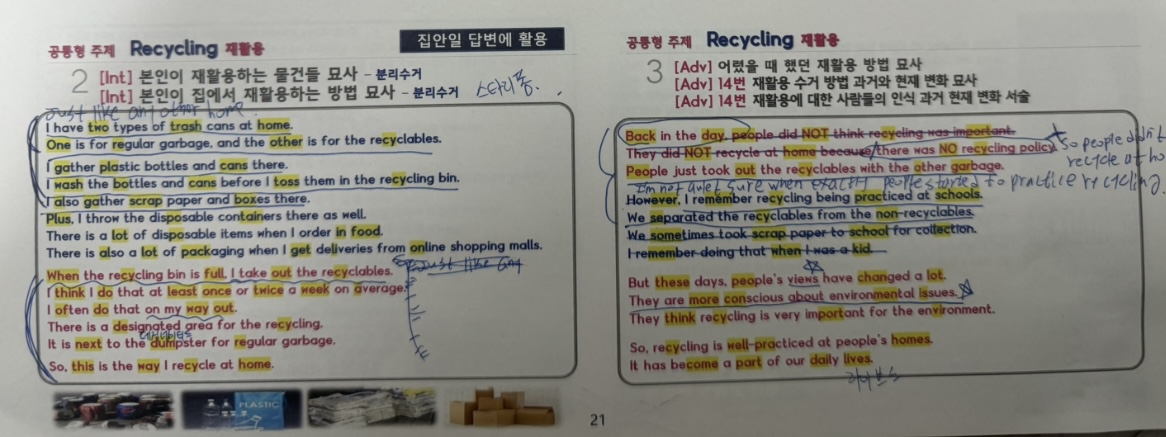 공통형 주제 Recycling 재활용
집안일 답변에 활용
2 [Int] 본인이 재활용하는 물건들 묘사 – 분리수거
[Int] 본인이 집에서 재활용하는 방법 묘사 – 분리수거
Just like any other home.
I have two types of trash cans at home.
One is for regular garbage, and the other is for the recyclables.
I gather plastic bottles and cans there.
I wash the bottles and cans before I toss them in the recycling bin.
I also gather scrap paper and boxes there.
Plus, I throw the disposable containers there as well.
There is a lot of disposable items when I order in food.
There is also a lot of packaging when I get deliveries from online shopping malls.
When the recycling bin is full, I take out the recyclables.
I think I do that at least once or twice a week on average.
I often do that on my way out.
There is a designated area for the recycling.
It is next to the dumpster for regular garbage.
So, this is the way I recycle at home.
PLASTIC
21
공통형 주제 Recycling 재활용
3 [Adv] 어렸을 때 했던 재활용 방법 묘사
[Adv] 14번 재활용 수거 방법 과거와 현재 변화 묘사
[Adv] 14번 재활용에 대한 사람들의 인식 과거 현재 변화 서술
Back in the day, people did NOT think recycling was important.
They did NOT recycle at home because there was NO recycling policy.
so people didn't
recycle at ho
People just took out the recyclables with the other garbage.
I'm not quiet sure when exactly people started to practice recycling
However, I remember recycling being practiced at schools.
We separated the recyclables from the non-recyclables.
We sometimes took scrap paper to school for collection.
I remember doing that when I was a kid.
But these days, people's views have changed a lot.
They are more conscious about environmental issues.
They think recycling is very important for the environment.
So, recycling is well-practiced at people's homes.
It has become a part of our daily lives.